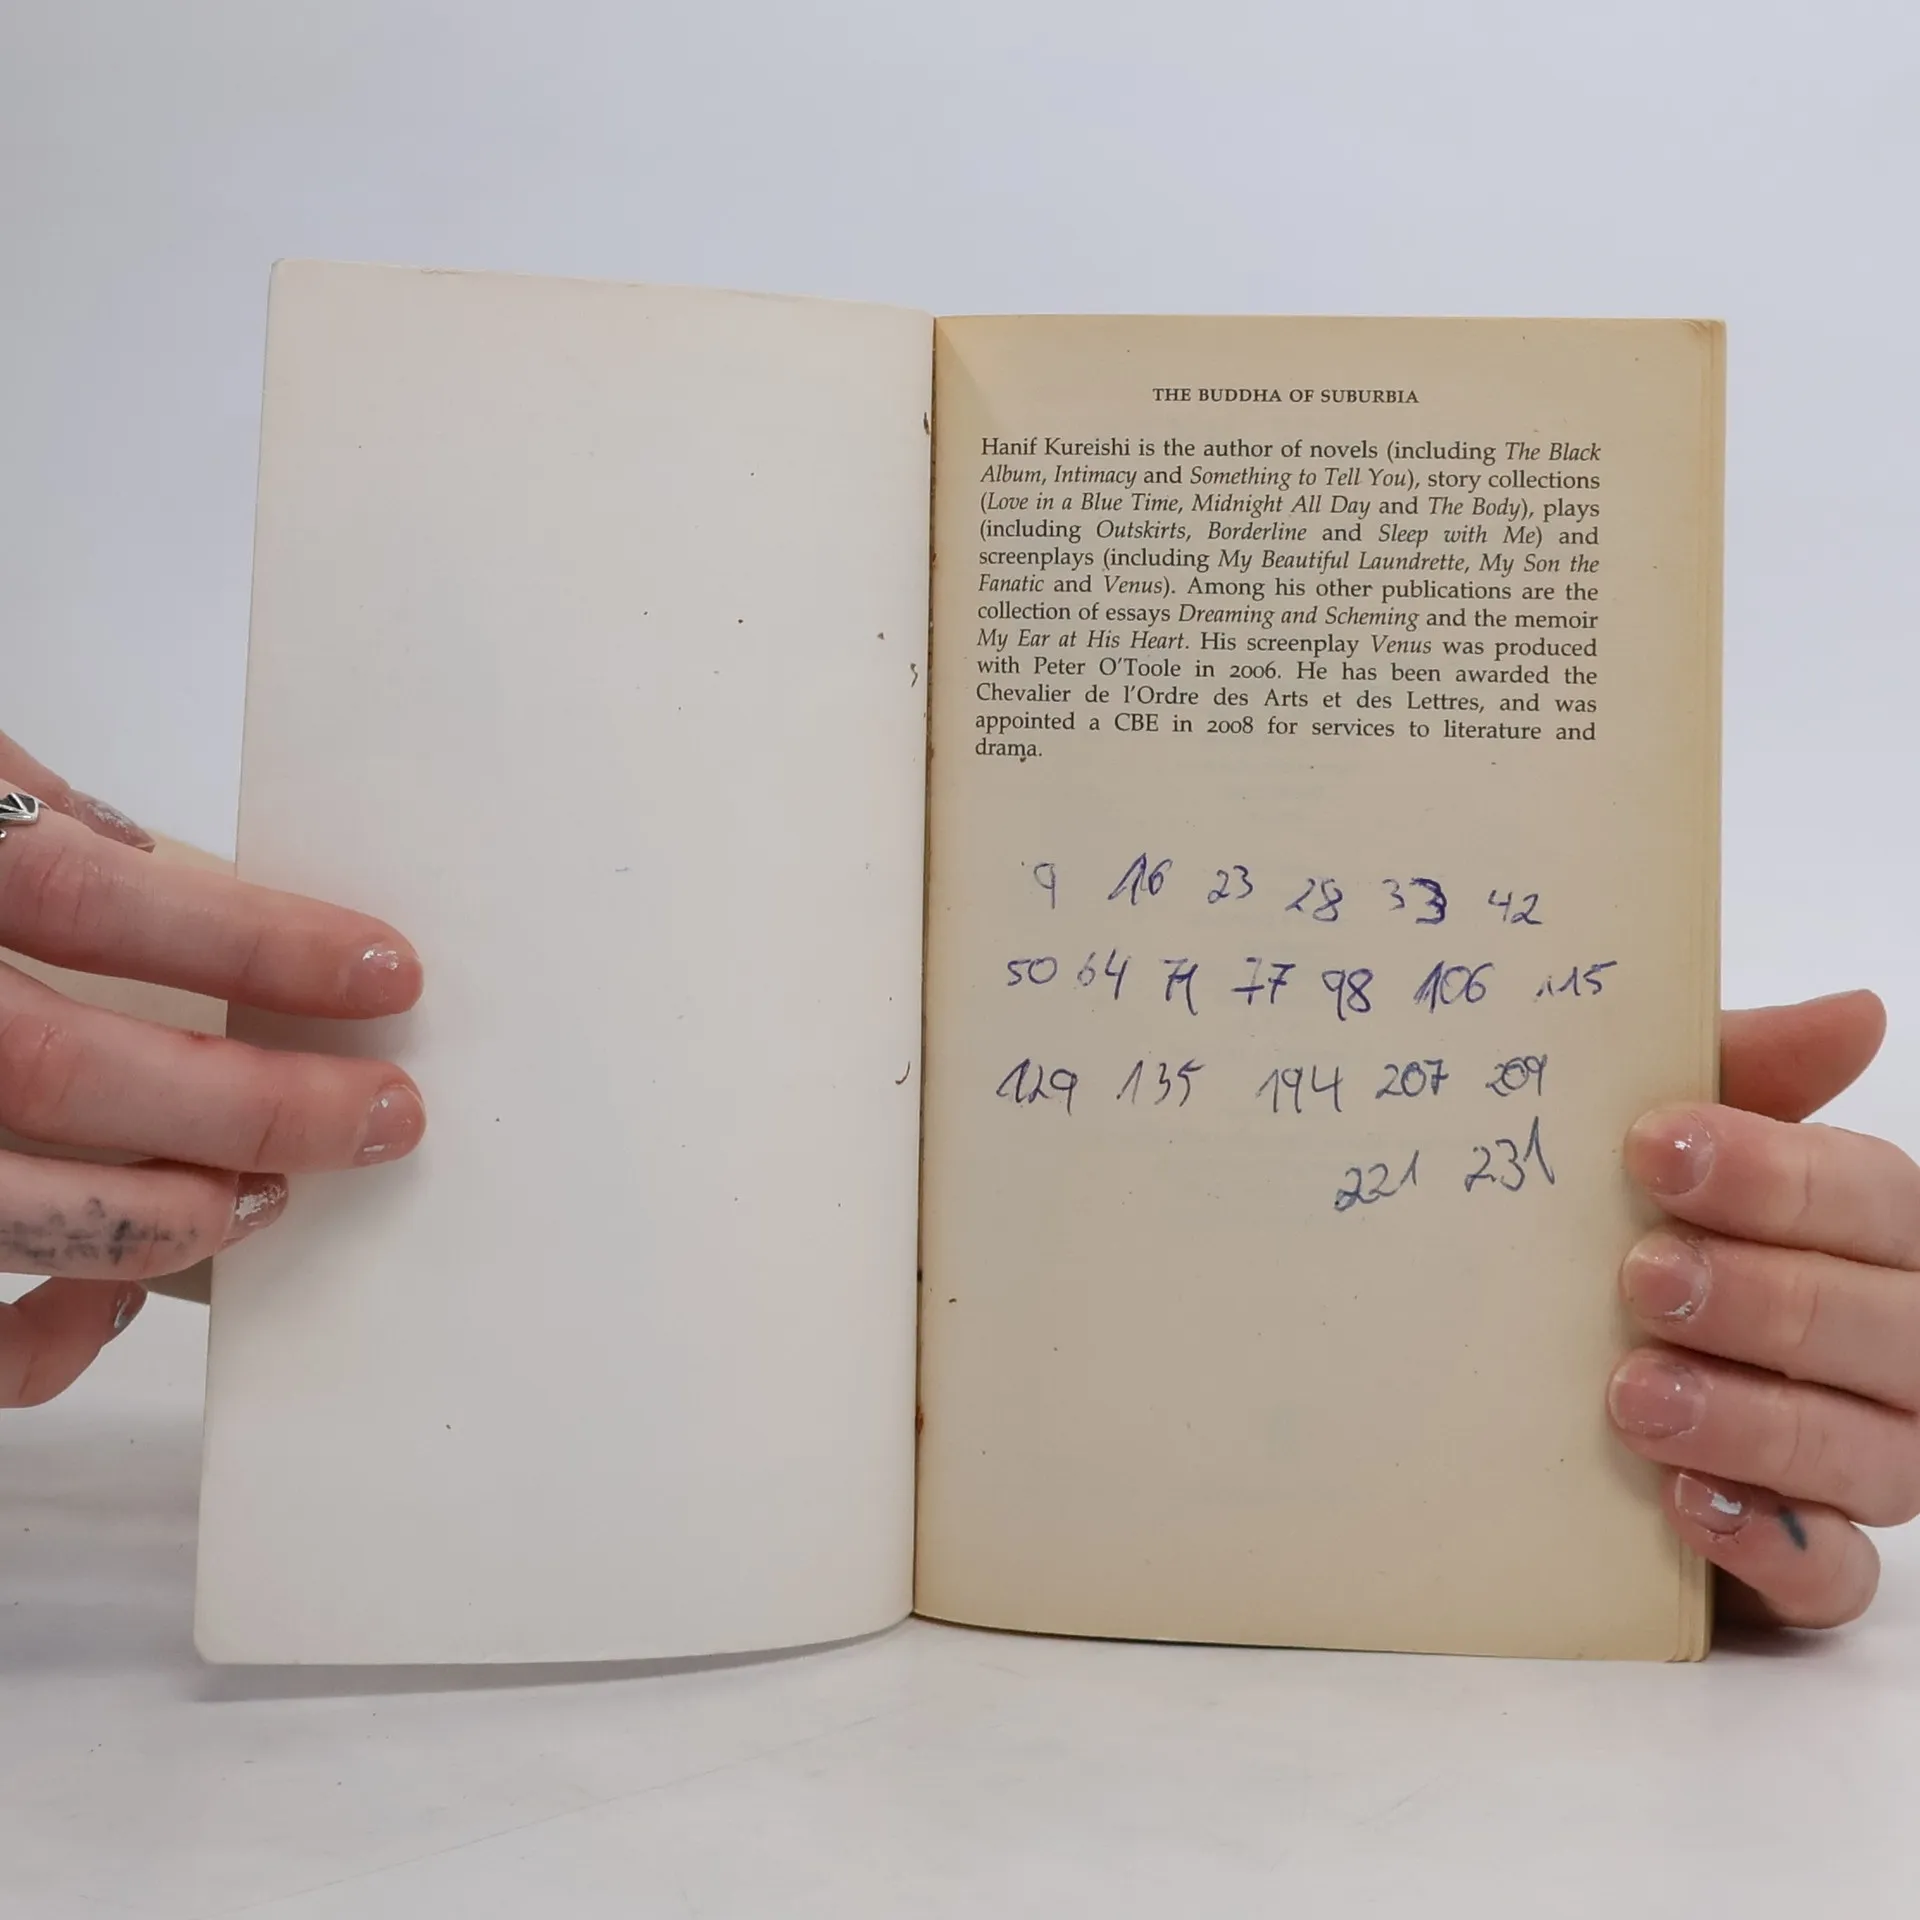 THE BUDDHA OF SUBURBIA
Hanif Kureishi is the author of novels (including The Black
Album, Intimacy and Something to Tell You), story collections
(Love in a Blue Time, Midnight All Day and The Body), plays
(including Outskirts, Borderline and Sleep with Me) and
screenplays (including My Beautiful Laundrette, My Son the
Fanatic and Venus). Among his other publications are the
collection of essays Dreaming and Scheming and the memoir
My Ear at His Heart. His screenplay Venus was produced
with Peter O'Toole in 2006. He has been awarded the
Chevalier de l'Ordre des Arts et des Lettres, and was
appointed a CBE in 2008 for services to literature and
drama.
9 16 23 28 33 42
50 64 71 77 98 106 115
129 135 194 207 209
221 231